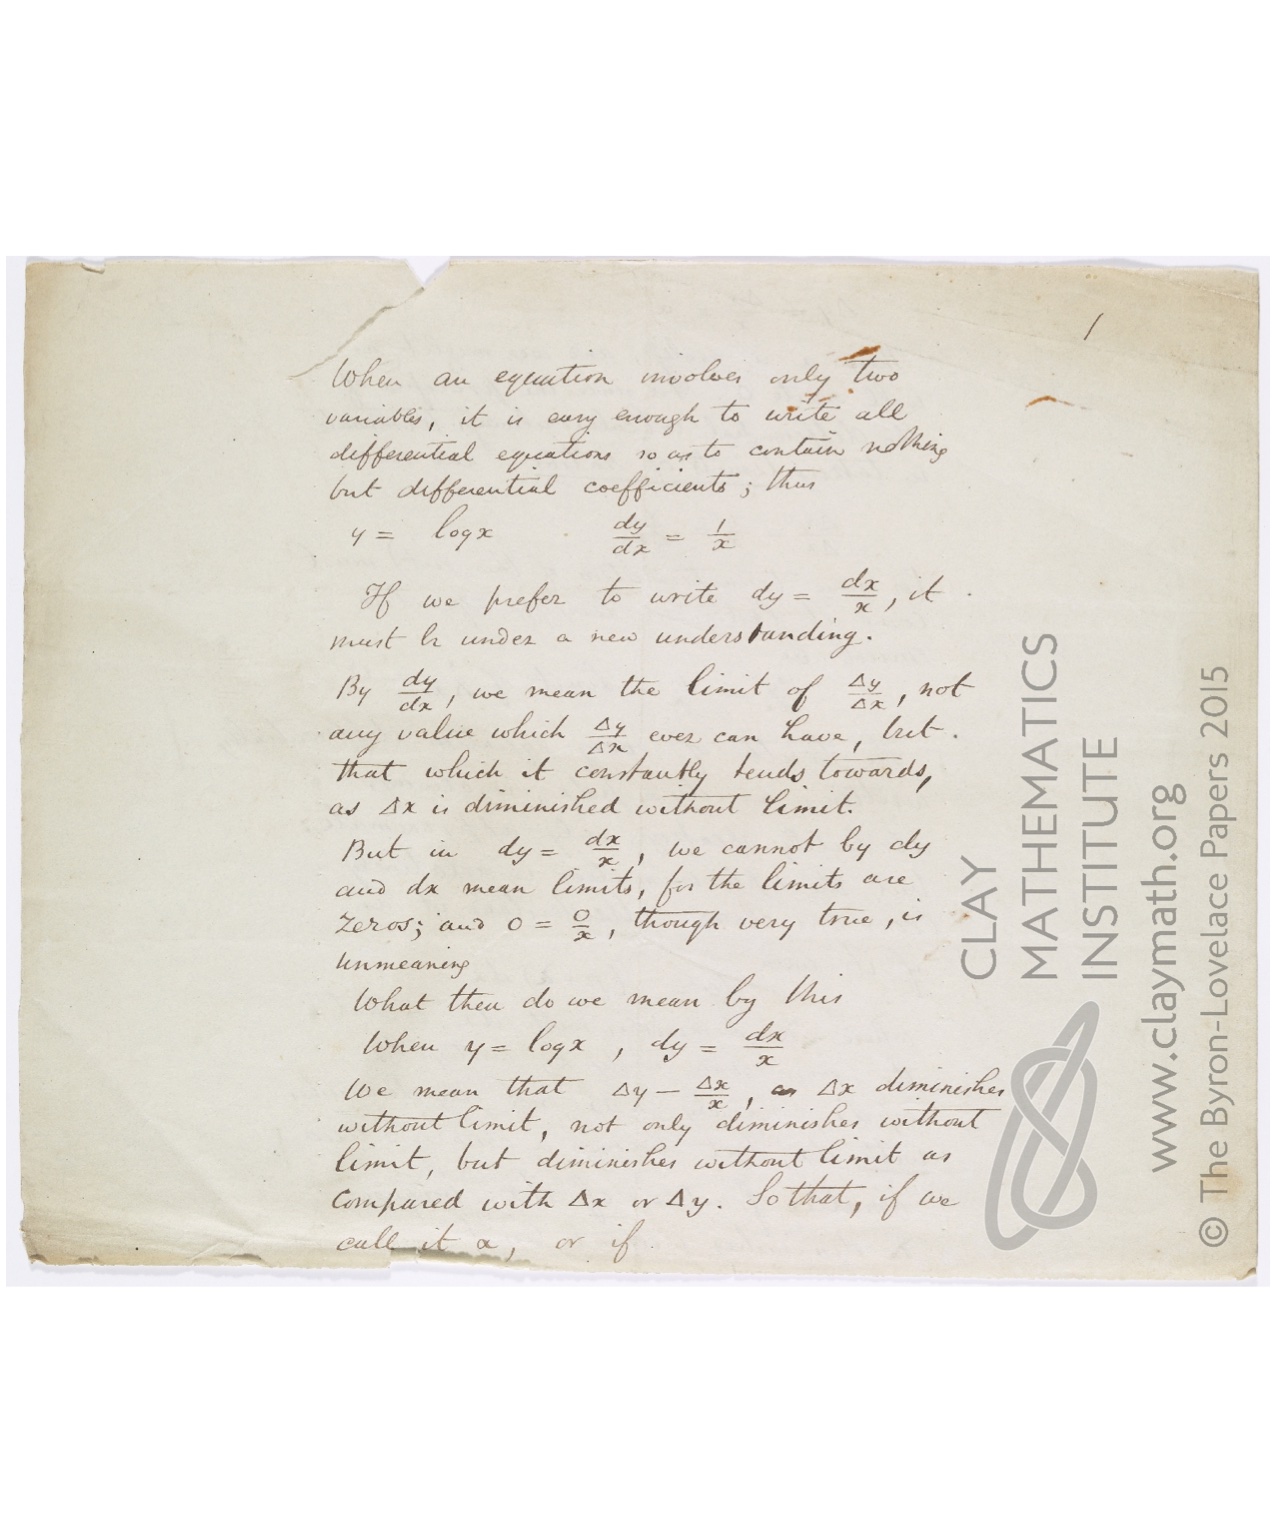 1
When an equation involves only two
variables, it is easy enough to write all
differential equations so as to contain nothing
but differential coefficients; thus
y = log x dy/dx = 1/x
If we prefer to write dy = dx/x, it
must be under a new understanding.
By dy/dx, we mean the limit of Δy/Δx, not
any value which Δy/Δx ever can have, but
that which it constantly tends towards,
as Δx is diminished without limit.
But in dy = dx/x, we cannot by dy
and dx mean limits, for the limits are
zeros; and 0 = 0/x, though very true, is
unmeaning
What then do we mean by this
When y = log x, dy = dx/x
We mean that Δy − Δx/x, as Δx diminishes
without limit, not only diminishes without
limit, but diminishes without limit as
compared with Δx or Δy. So that, if we
call it α, or if
CLAY
MATHEMATICS
INSTITUTE
www.claymath.org
© The Byron-Lovelace Papers 2015